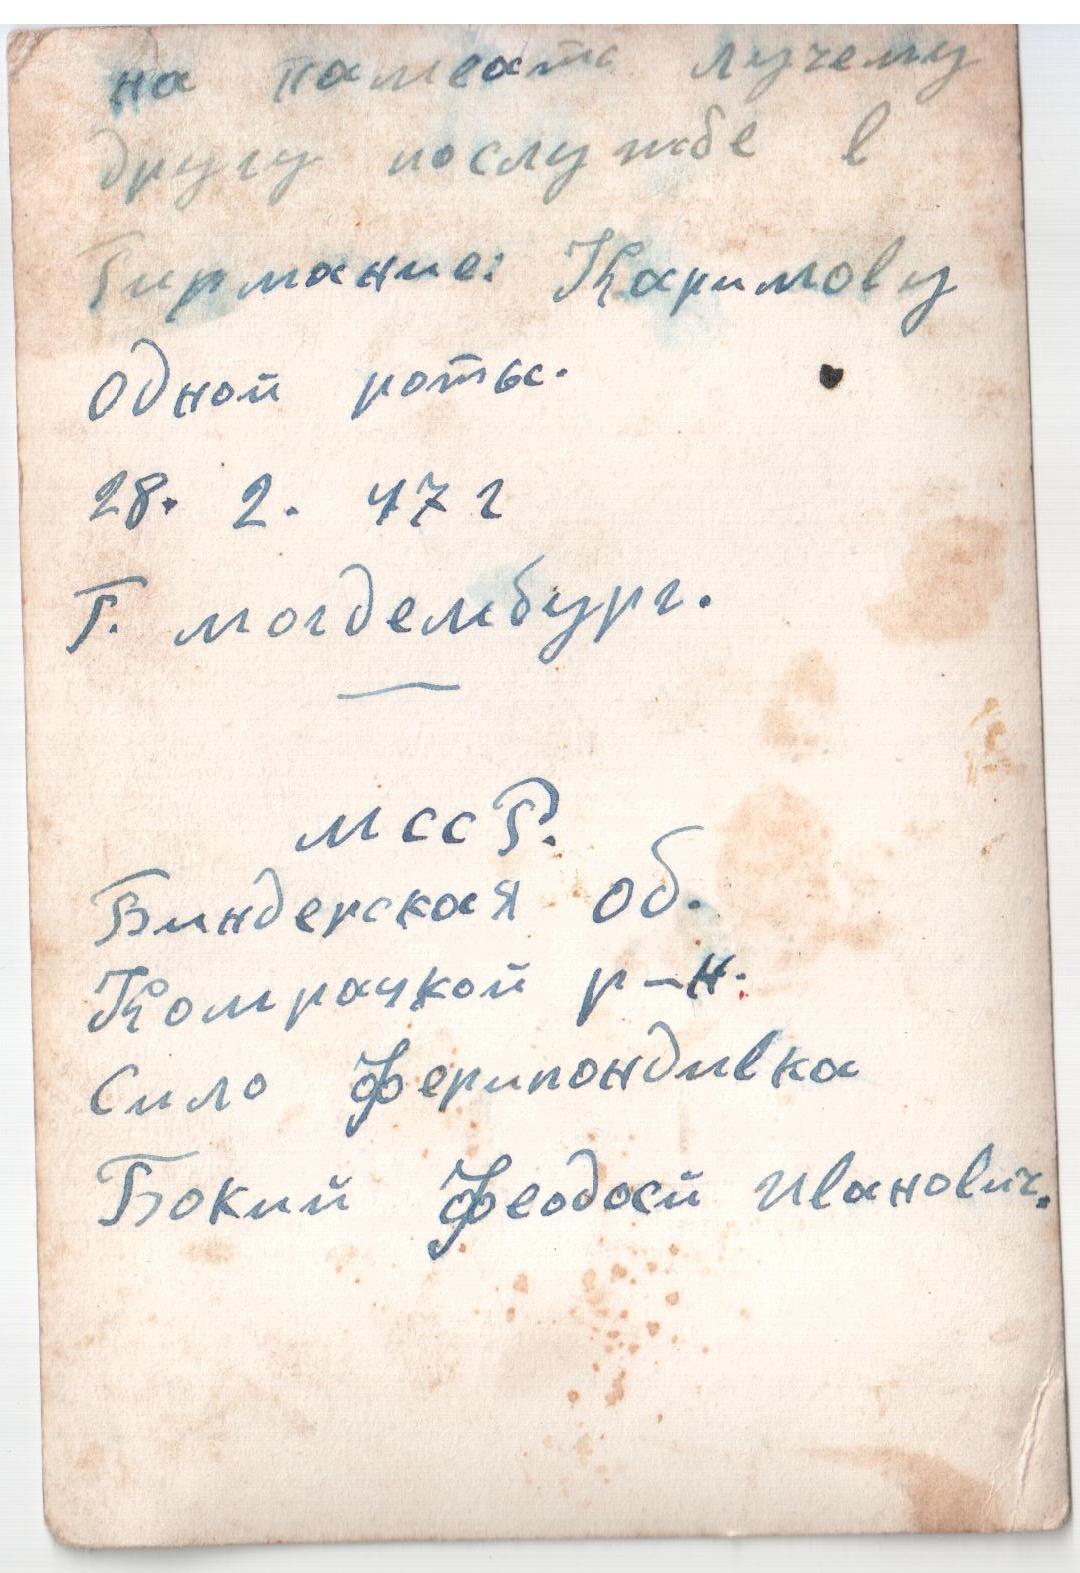 на памеать лучему
другу послужбе в
Гирмание: Каримову
Одной роты.
28. 2. 47 г
Г. могдембург.
мссР.
Биндерская об.
Комрачкой р-н.
Сило Ферипондивка
Бокий Феодосй Иванович.